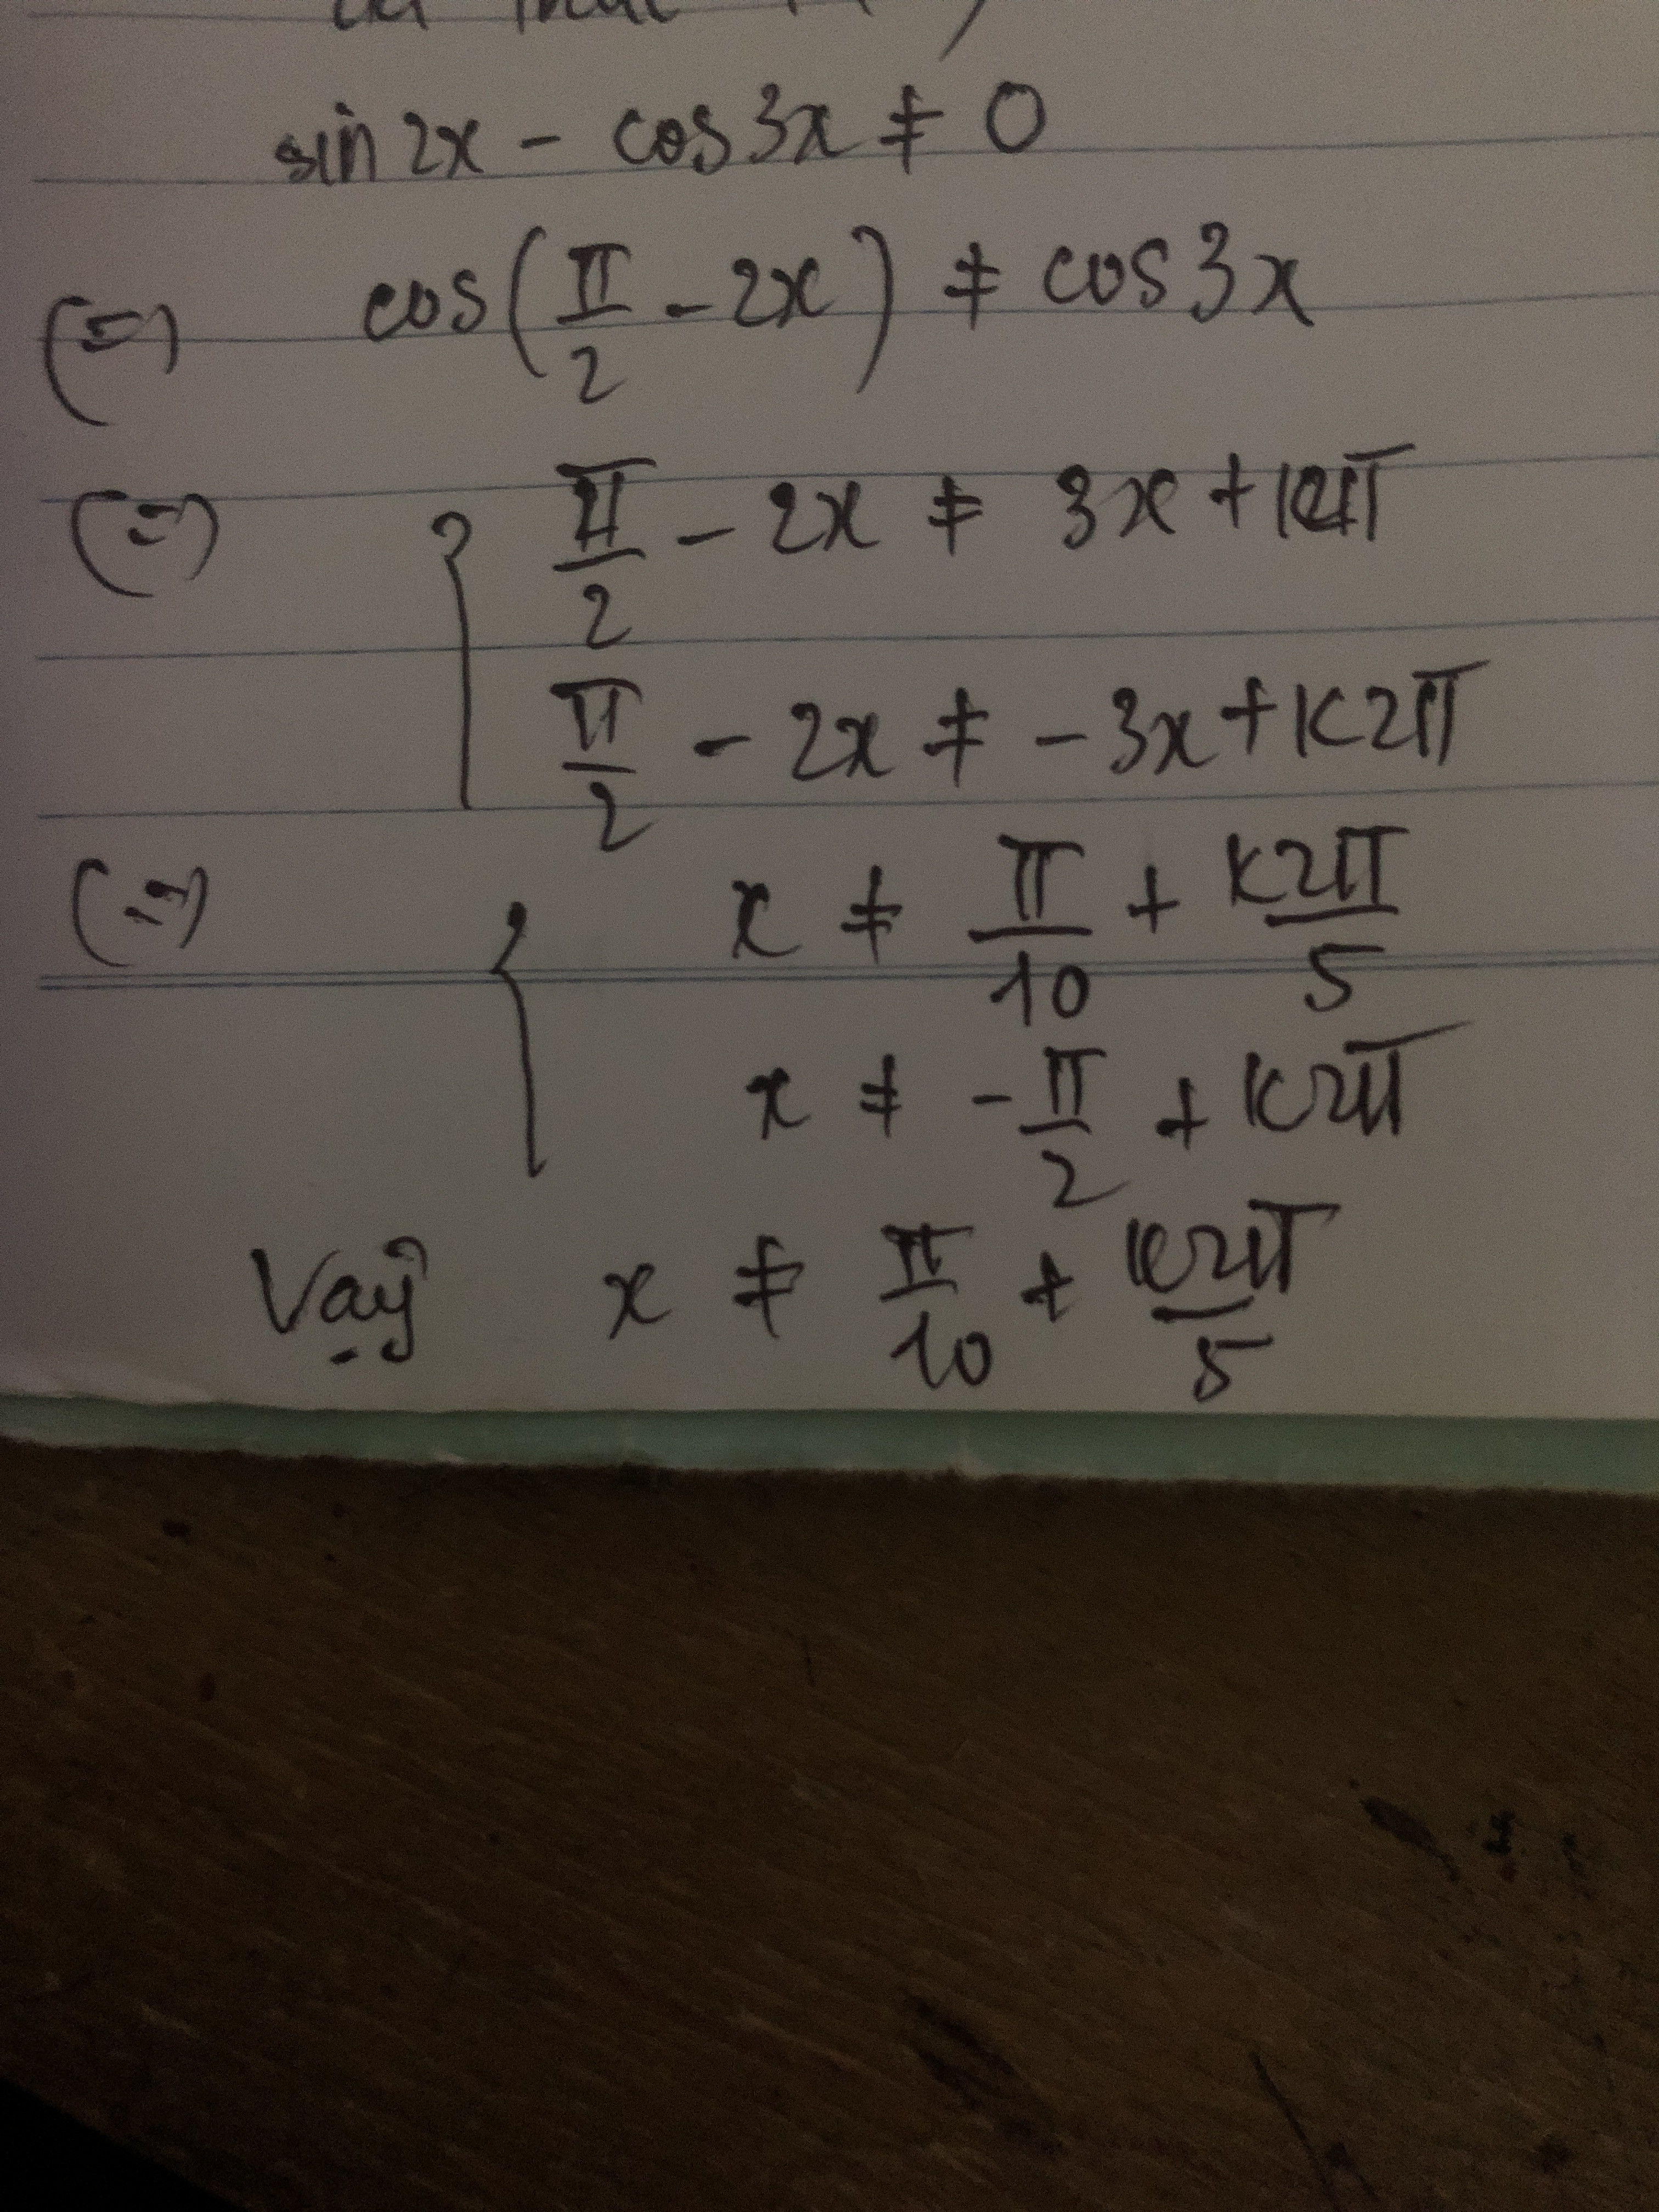 sin 2x - cos 3x ≠ 0
(=) cos(π/2 - 2x) ≠ cos 3x
(=) { π/2 - 2x ≠ 3x + k2π
π/2 - 2x ≠ -3x + k2π
(=) { x ≠ π/10 + k2π/5
x ≠ -π/2 + k2π
Vậy x ≠ π/10 + k2π/5